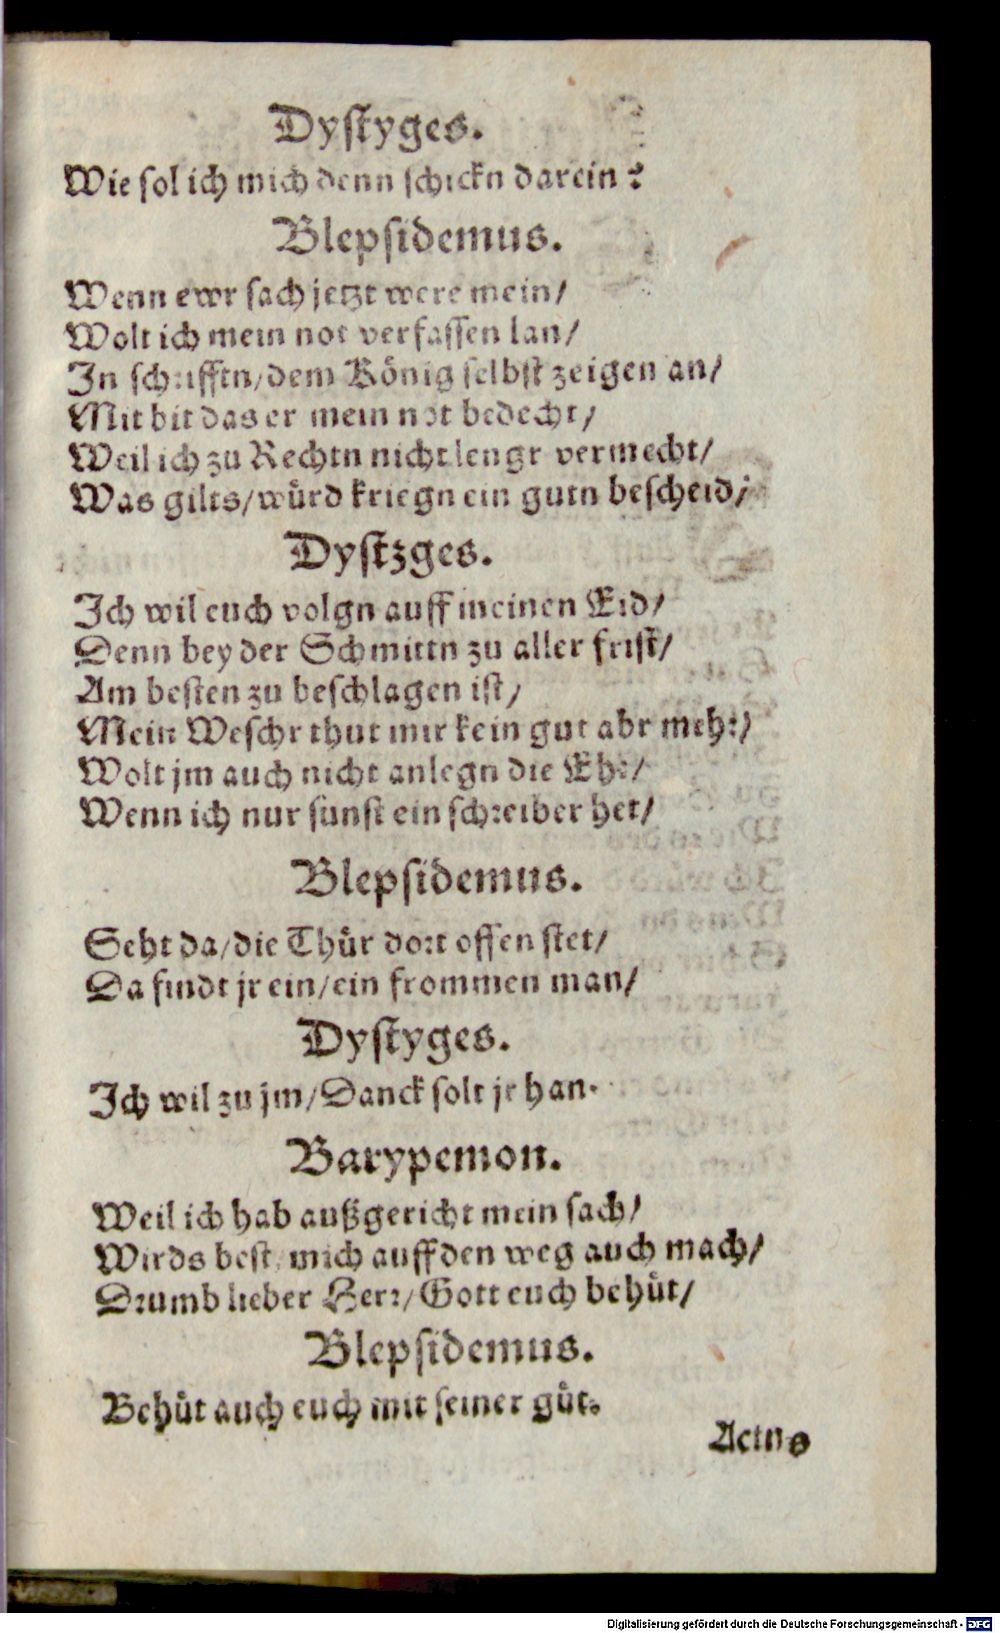 Dyſtyges.
Wie ſol ich mich denn ſchickn darein?
Blepſidemus.
Wenn ewr ſach jetzt were mein/
Wolt ich mein not verfaſſen lan/
In ſchrifftn/dem König ſelbſt zeigen an/
Mit bit das er mein not bedecht/
Weil ich zu Rechtn nicht lengr vermecht/
Was gilts/würd kriegn ein gutn beſcheid/
Dyſtzges.
Ich wil euch volgn auff meinen Eid/
Denn bey der Schmittn zu aller friſt/
Am beſten zu beſchlagen iſt/
Mein Weſchr thut mir kein gut abr mehr/
Wolt jm auch nicht anlegn die Ehr/
Wenn ich nur ſunſt ein ſchreiber het/
Blepſidemus.
Seht da/die Thür dort offen ſtet/
Da findt jr ein/ein frommen man/
Dyſtyges.
Ich wil zu jm/Danck ſolt jr han.
Barypemon.
Weil ich hab außgericht mein ſach/
Wirds beſt/mich auff den weg auch mach/
Drumb lieber Herr/Gott euch behüt/
Blepſidemus.
Behüt auch euch mit ſeiner güt.
Actus
Digitalisierung gefördert durch die Deutsche Forschungsgemeinschaft - DFG